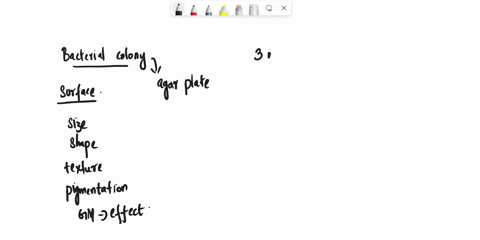 Bacterial colony
agar plate
Surface.
size
shape
texture
pigmentation
GM → effect.
3